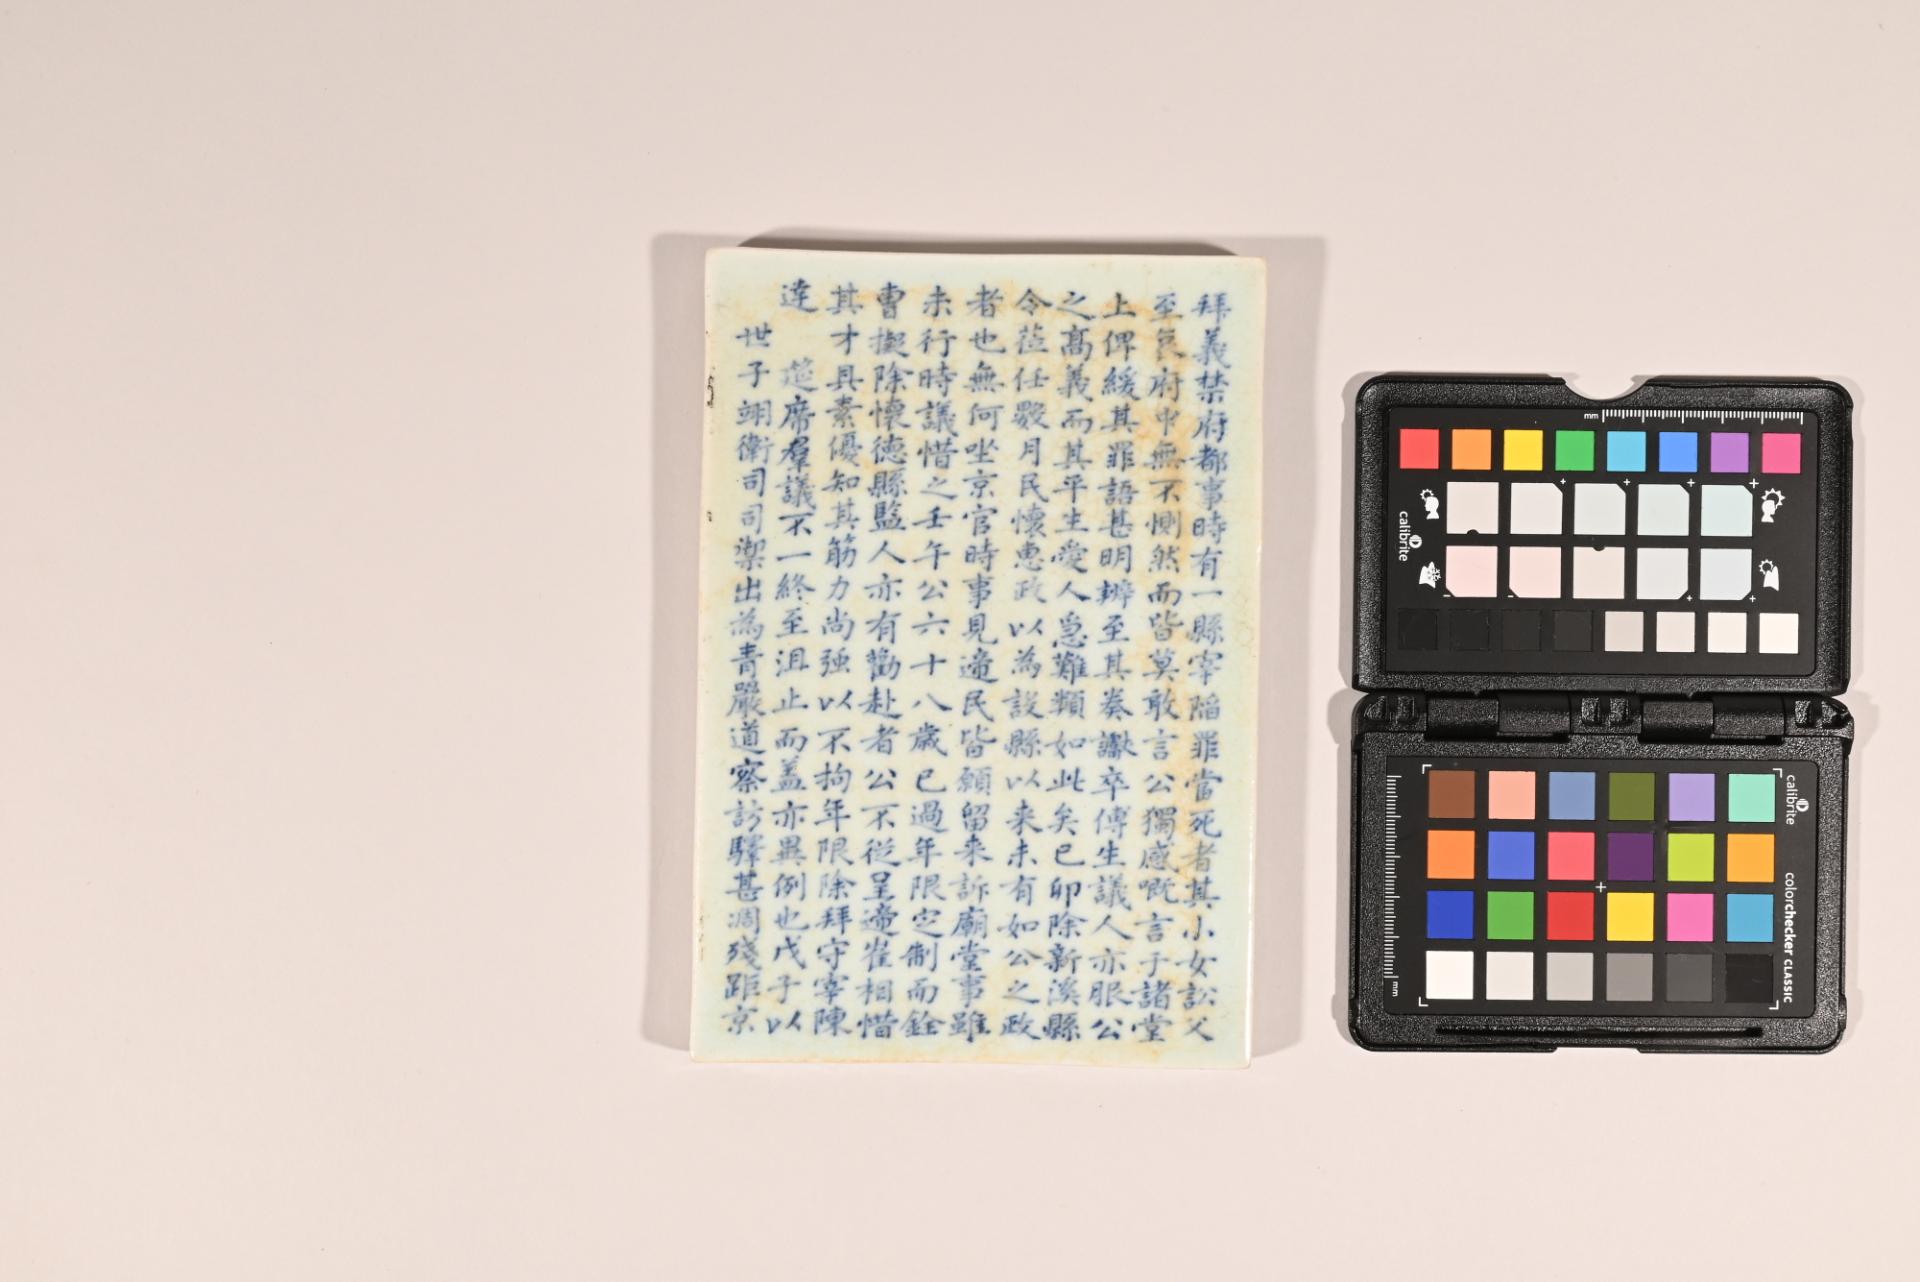 拜義禁府都事時有一縣宰陷罪當死者其小女訟父
至哀府中無不惻然而皆莫敢言公獨感嘅言于諸堂
上俾緩其罪語甚明辨至其奏讞卒傅生議人亦服公
之高義而其平生愛人急難類如此矣己卯除新溪縣
令莅任數月民懷惠政以為設縣以来未有如公之政
者也無何坐京官時事見遞民皆願留来訴廟堂事雖
未行時議惜之壬午公六十八歲已過年限定制而銓
曹擬除懷德縣監人亦有勸赴者公不從呈遞崔相惜
其才具素優知其筋力尚強以不拘年限除拜守宰陳
達 筵席羣議不一終至沮止而盖亦異例也戊子以
世子翊衛司司禦出為青嚴道察訪驛甚凋殘距京
mm
calibrite
calibrite
colorchecker CLASSIC
mm